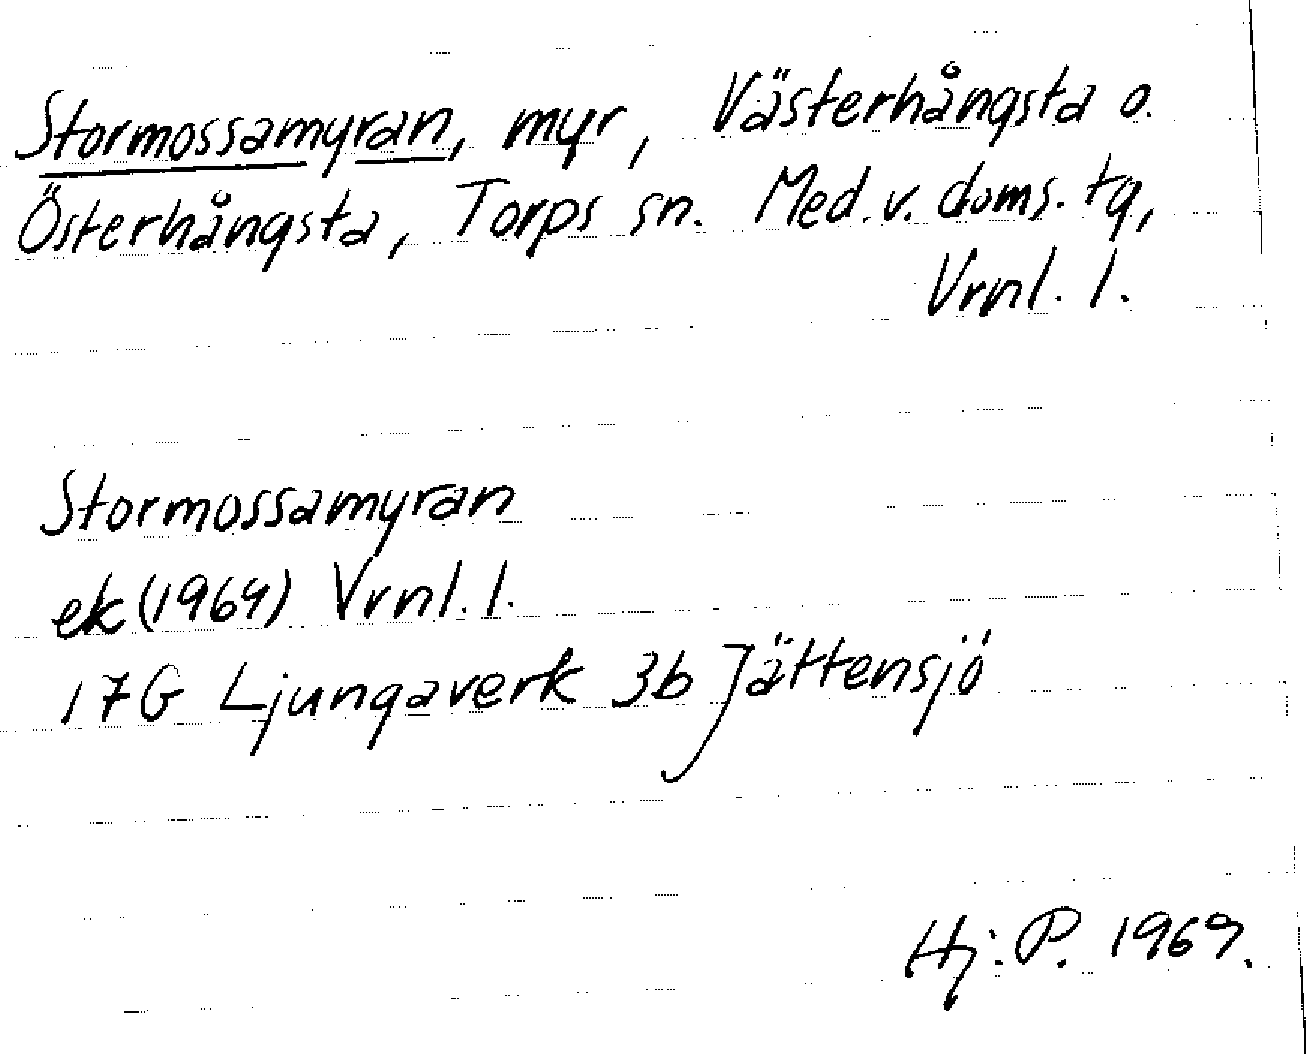 Stormossamyran, myr, Västerhångsta o.
Österhångsta, Torps sn. Med. v. doms. tg,
Vrnl. l.
Stormossamyran
ek (1969) Vrnl. l.
17G Ljungaverk 3b Jättensjö
Hj. P. 1969.